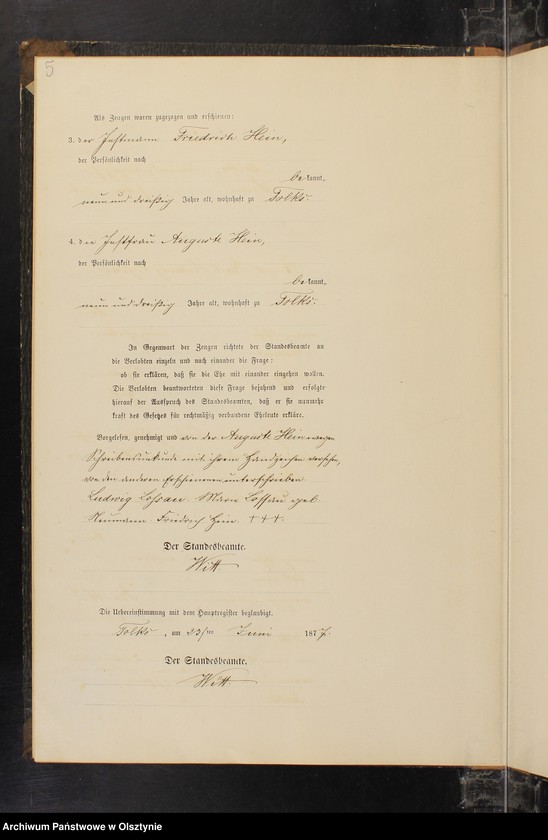 5
Als Zeugen waren zugezogen und erschienen:
3. der Instmann Friedrich Hein,
der Persönlichkeit nach
be kannt,
neun und dreißig Jahre alt, wohnhaft zu Tolks.
4. die Instfrau Auguste Hein,
der Persönlichkeit nach
be kannt,
neun und dreißig Jahre alt, wohnhaft zu Tolks.
In Gegenwart der Zeugen richtete der Standesbeamte an
die Verlobten einzeln und nach einander die Frage:
ob sie erklären, daß sie die Ehe mit einander eingehen wollen.
Die Verlobten beantworteten diese Frage bejahend und erfolgte
hierauf der Ausspruch des Standesbeamten, daß er sie nunmehr
kraft des Gesetzes für rechtmäßig verbundene Eheleute erkläre.
Vorgelesen, genehmigt und von der Auguste Hein wegen
Schreibensunkunde mit ihrem Handzeichen versehen,
von den anderen Erschienenen unterschrieben
Ludwig Lossau. Marie Lossau geb.
Neumann. Friedrich Hein. +++.
Der Standesbeamte.
Witt
Die Uebereinstimmung mit dem Hauptregister beglaubigt.
Tolks, am 23ten Juni 1877.
Der Standesbeamte.
Witt.
Archiwum Państwowe w Olsztynie